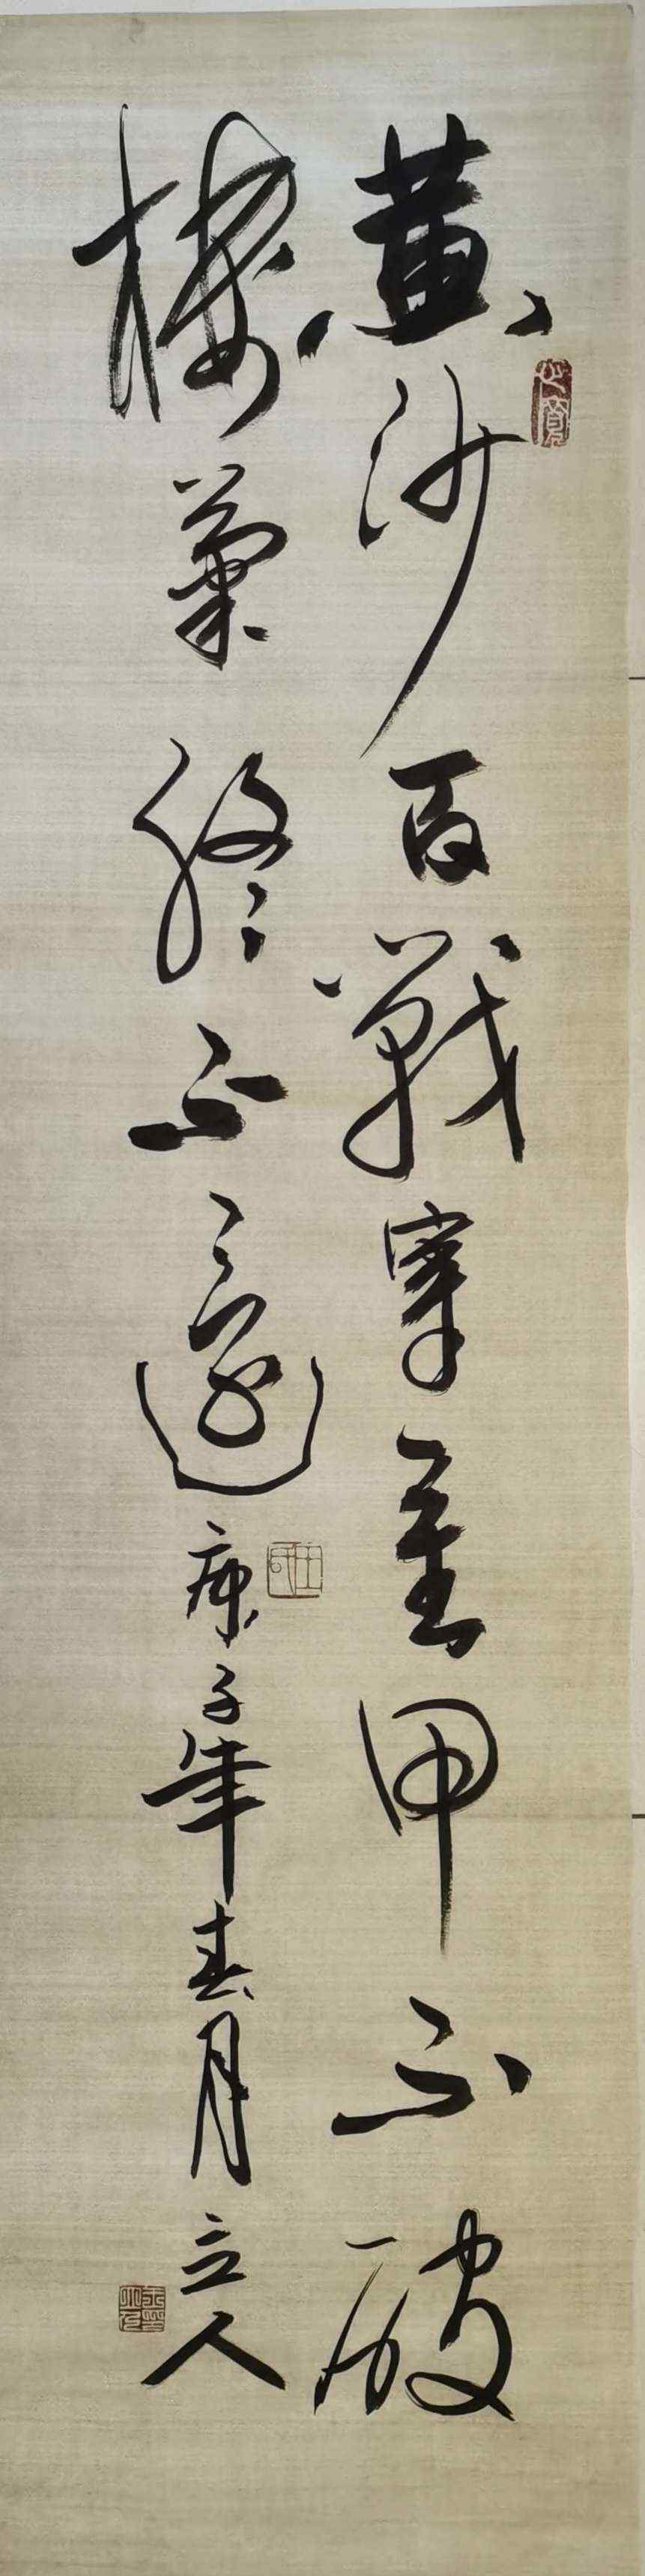 黄沙百戰穿金甲不破
樓蘭終不還 庚子年春月立人